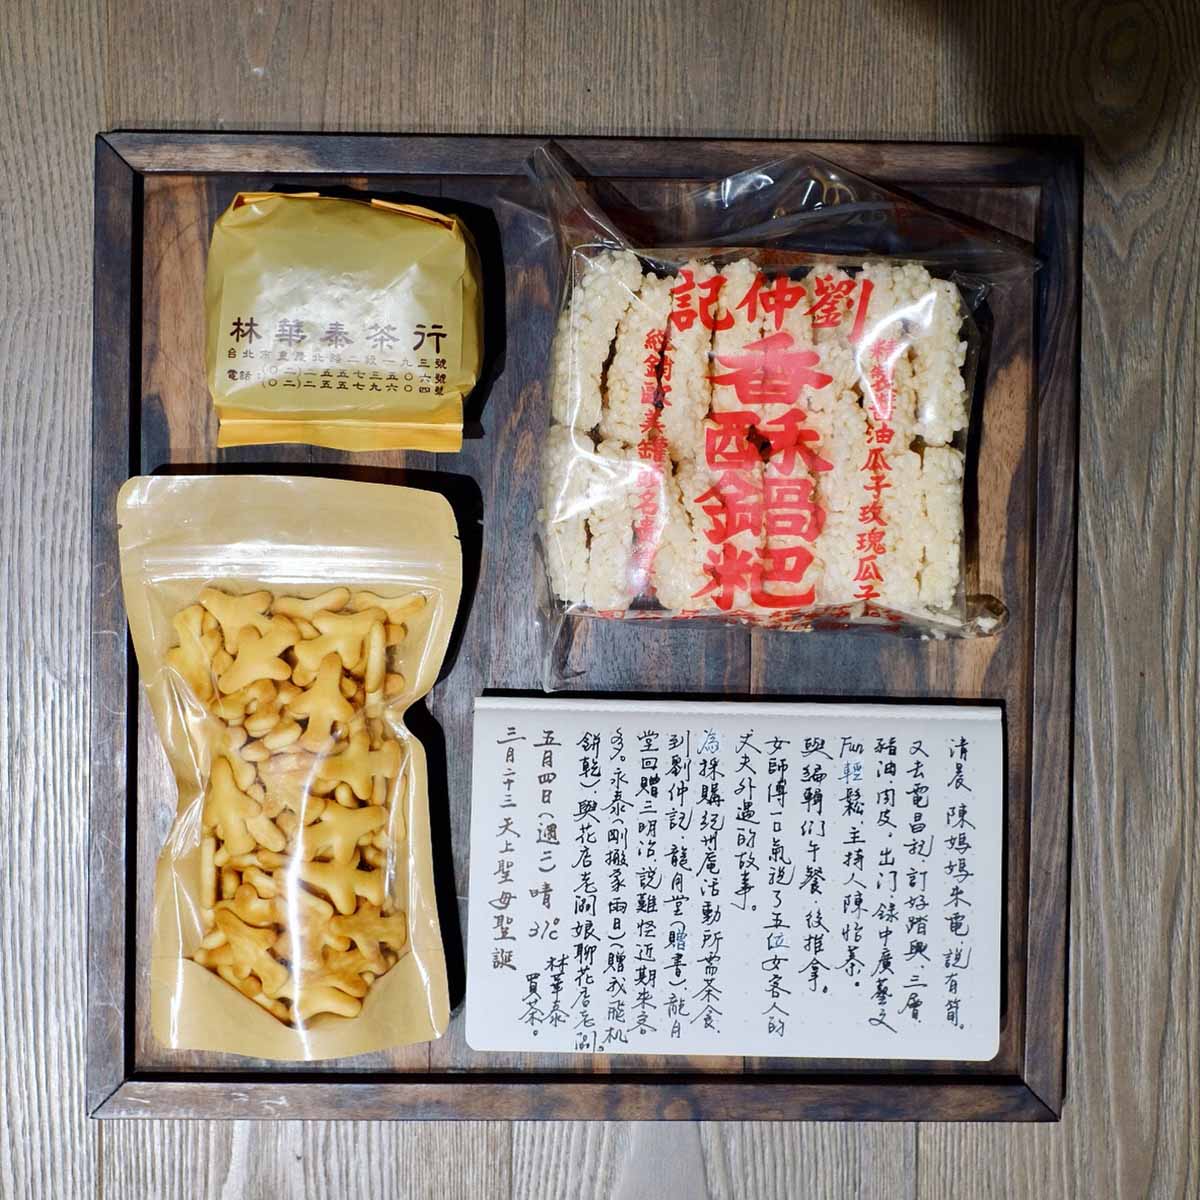 林華泰茶行
台北市重慶北路二段一九三號
電話:(〇二)二五五七三五〇六號
(〇二)二五五七九六〇四號
劉仲記
香酥鍋粑
精製醬油瓜子玫瑰瓜子
經銷歐美鐘錶名
清晨陳媽媽來電說有筍。
又去電昌記,訂好踏輿、三層、
豬油、肉皮。出門,錄中廣藝文
Fun輕鬆,主持人陳怡蓁。
與編輯們午餐,後推拿。
女師傅一口氣說了五位女客人的
丈夫外遇的故事。
為採購紀州庵活動所需茶食,
到劉仲記、龍月堂(贈書)、龍月
堂回贈三明治,說難怪近期來客
多。永泰(剛搬家兩日)(贈我飛机
餅乾)、與花店老闆娘聊花店老闆。
林華泰
買茶。
五月四日(週二)晴 31℃
三月二十三天上聖母聖誕